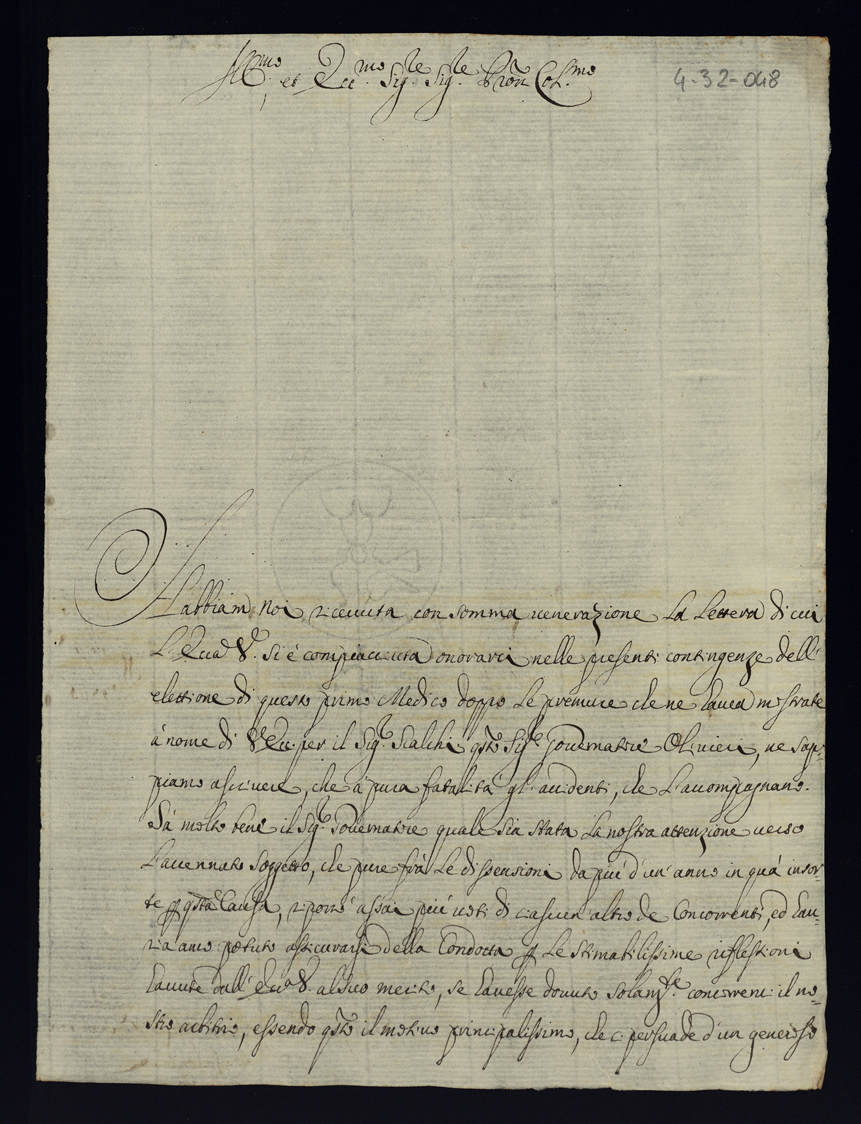 Ill.mo et Ecc.mo Sig.re Sig.re Pron Col.mo
4-32-048
Habbiam Noi riceuuta con somma uenerazione La Lettera di cui
L'Ecc.a V. si è compiacciuta onorarci nelle presenti contingenze dell'
elettione di questo primo Medico doppo Le premure che ne haueua mostrate
à nome di V. Ecc. per il Sig.r Scalchi q.sto Sig.re Gouernatore Oliuieri, ne sap-
piamo ascriuere, che à pura fatalità gl'accidenti, che L'accompagnano.
Sà molto bene il Sig.r Gouernatore quale sia stata La nostra attenzione uerso
L'accennato Soggetto, che pure frà Le dissensioni da più d'un'anno in quà insor-
te p q.sta Causa, riportò assai più uoti di ciascun altro de Concorrenti, ed hau-
riamo potuto assicurarsi della Condotta p Le stimatilissime riflessioni
hauute dall'Ecc.a V. al suo merito, se hauesse douuto Solam.te concorrerui il no-
stro arbitrio, essendo q.sto il motiuo principalissimo, che ci persuade d'un generoso